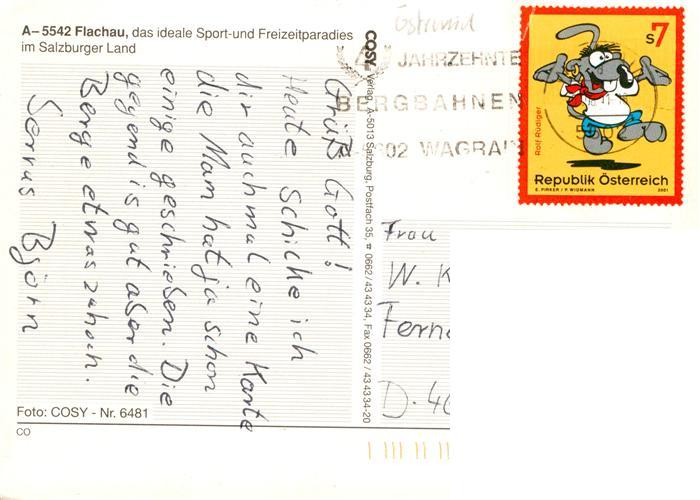 A–5542 Flachau, das ideale Sport-und Freizeitparadies
im Salzburger Land
Grüß Gott!
Heute schicke ich
dir auch mal eine Karte
die Mam hat ja schon
einige geschrieben. Die
gegend is gut aber die
Berge etwas zu hoch.
Servus Björn
Foto: COSY - Nr. 6481
CO
COSY Verlag, A-5013 Salzburg, Postfach 35, ¤ 0662/43 43 34, Fax 0662/43 43 34-20
JAHRZEHNTE
BERGBAHNEN
02 WAGRAIN
s7
Rolf Rüdiger
Republik Österreich
E. PIRKER / P. WIDMANN 2001
Frau
W. K
Fern
D-46